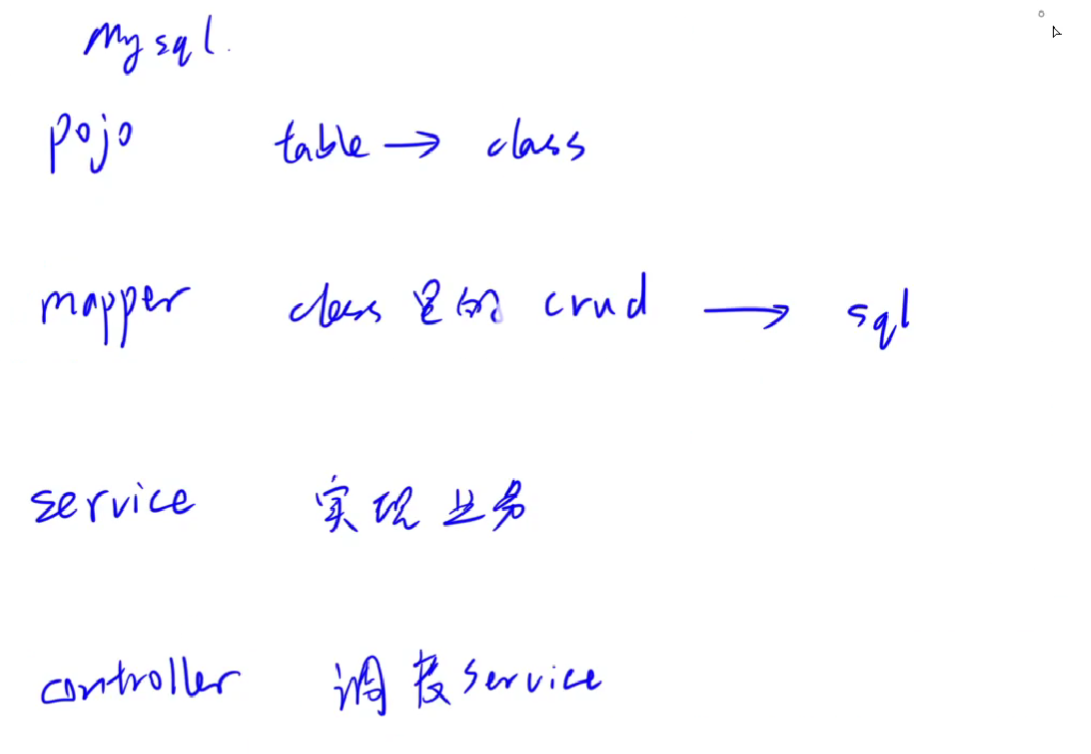 Mysql.
pojo table → class
mapper class里的 crud → sql
service 实现业务
controller 调度service